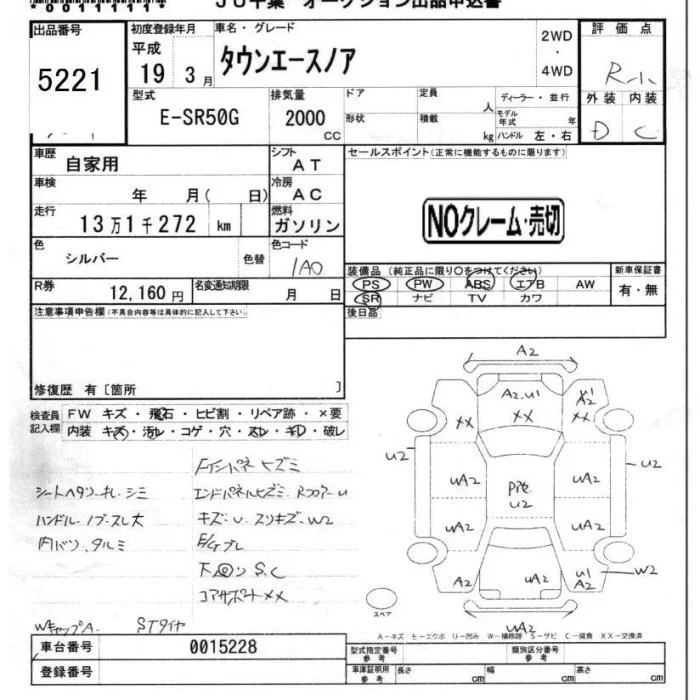 *0011111*
JU千葉 オークション出品申込書
出品番号
5221
初度登録年月
平成
19 3月
車名・グレード
タウンエースノア
2WD
・
4WD
評価点
R-小
外装 内装
D C
型式
E-SR50G
排気量
2000
CC
ドア
定員
人
形状
積載
kg
ディーラー・並行
モデル年式
年
ハンドル 左・右
車歴
自家用
シフト
AT
セールスポイント(正常に機能するものに限ります)
車検
年 月( 日)
冷房
AC
走行
13万1千272 km
燃料
ガソリン
NOクレーム・売切
色
シルバー
色替
色コード
1A0
装備品(純正品に限り〇をつけてください)
PS PW ABS エアB AW
SR ナビ TV カワ
新車保証書
有・無
R券
12,160円
名変通知期限
月 日
後日品
注意事項申告欄(不具合内容等は具体的に記入して下さい)
修復歴 有〔箇所 〕
検査員
記入欄
FW キズ・飛石・ヒビ割・リペア跡・×要
内装 キズ・汚レ・コゲ・穴・スレ・ギレ・破レ
Fインパネヒズミ
シートヘタリ シミ
エンドパネルヒズミ RフロアーU
ハンドル・ノブ・スレ大
キズ・U スリキズ・W2
内バリ、タルミ
E/Gブレ
下回り S.C
コアサポートXX
WキャップA
STタイヤ
A2
A2.U1
XX
XX
U1
A2
XX
U2
U2
UA2
UA2
Pitc
U2
UA2
UA2
A2
UA2
U1
A2
W2
UA2
スペア
A-キズ E-エクボ U-凹み W-補修跡 S-サビ C-腐食 XX-交換済
車台番号
0015228
登録番号
型式指定番号
参考
類別区分番号
参考
車庫証明用
参考
長さ
cm
幅
cm
高さ
cm